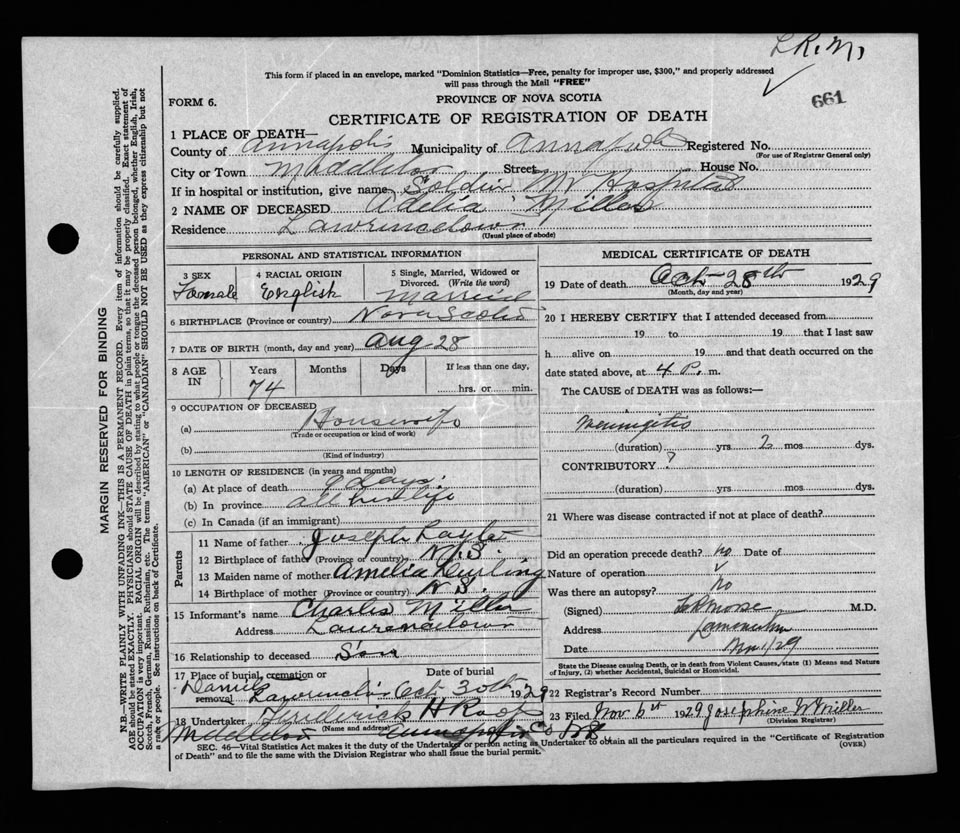 L.R.M.
This form if placed in an envelope, marked "Dominion Statistics—Free, penalty for improper use, $300," and properly addressed
will pass through the Mail "FREE"
661
FORM 6.
PROVINCE OF NOVA SCOTIA
CERTIFICATE OF REGISTRATION OF DEATH
1 PLACE OF DEATH—
County of Annapolis Municipality of Annapolis Registered No.
(For use of Registrar General only)
City or Town Middleton Street House No.
If in hospital or institution, give name Soldier M Hospital
2 NAME OF DECEASED Adelia Miller
Residence Lawrencetown
(Usual place of abode)
PERSONAL AND STATISTICAL INFORMATION
3 SEX
Female
4 RACIAL ORIGIN
English
5 Single, Married, Widowed or
Divorced. (Write the word)
Married
6 BIRTHPLACE (Province or country) Nova Scotia
7 DATE OF BIRTH (month, day and year) Aug 28
8 AGE IN
Years
74
Months
Days
If less than one day,
hrs. or min.
9 OCCUPATION OF DECEASED
(a) Housewife
(Trade or occupation or kind of work)
(b)
(Kind of industry)
10 LENGTH OF RESIDENCE (in years and months)
(a) At place of death 9 days.
(b) In province all her life
(c) In Canada (if an immigrant)
Parents
11 Name of father Joseph
12 Birthplace of father (Province or country) N.S.
13 Maiden name of mother Amelia
14 Birthplace of mother (Province or country) N S.
15 Informant's name Charles Miller
Address Lawrencetown
16 Relationship to deceased Son
17 Place of burial, cremation or removal Date of burial
Lawrencetown Oct 30th 1929
18 Undertaker Frederick H Roop
(Name and address)
Middleton Annapolis Co N.S.
MEDICAL CERTIFICATE OF DEATH
19 Date of death Oct-28th 1929
(Month, day and year)
20 I HEREBY CERTIFY that I attended deceased from
19 to 19 that I last saw
h alive on 19 and that death occurred on the
date stated above, at 4 P. m.
The CAUSE of DEATH was as follows:—
Meningitis
(duration) yrs 2 mos dys.
CONTRIBUTORY ?
(duration) yrs. mos. dys.
21 Where was disease contracted if not at place of death?
Did an operation precede death? no Date of
Nature of operation
Was there an autopsy? No
(Signed) Morse M.D.
Address Lawrencetown
Date Nov 1/29
State the Disease causing Death, or in death from Violent Causes, state (1) Means and Nature
of Injury, (2) whether Accidental, Suicidal or Homicidal.
22 Registrar's Record Number
23 Filed Nov 6th 1929 Josephine W Miller
(Division Registrar)
SEC. 46—Vital Statistics Act makes it the duty of the Undertaker or person acting as Undertaker to obtain all the particulars required in the "Certificate of Registration
of Death" and to file the same with the Division Registrar who shall issue the burial permit.
(OVER)
MARGIN RESERVED FOR BINDING
N.B.—WRITE PLAINLY WITH UNFADING INK—THIS IS A PERMANENT RECORD. Every item of information should be carefully supplied.
AGE should be stated EXACTLY. PHYSICIANS should STATE CAUSE OF DEATH in plain terms, so that it may be properly classified. Exact statement of
OCCUPATION is very important. RACIAL ORIGIN will be described by stating to what people or tongue the deceased person belonged, whether English, Irish,
Scotch, French, German, Russian, Ruthenian, etc. The terms "AMERICAN" or "CANADIAN" SHOULD NOT BE USED as they express citizenship but not
a race or people. See instructions on back of Certificate.